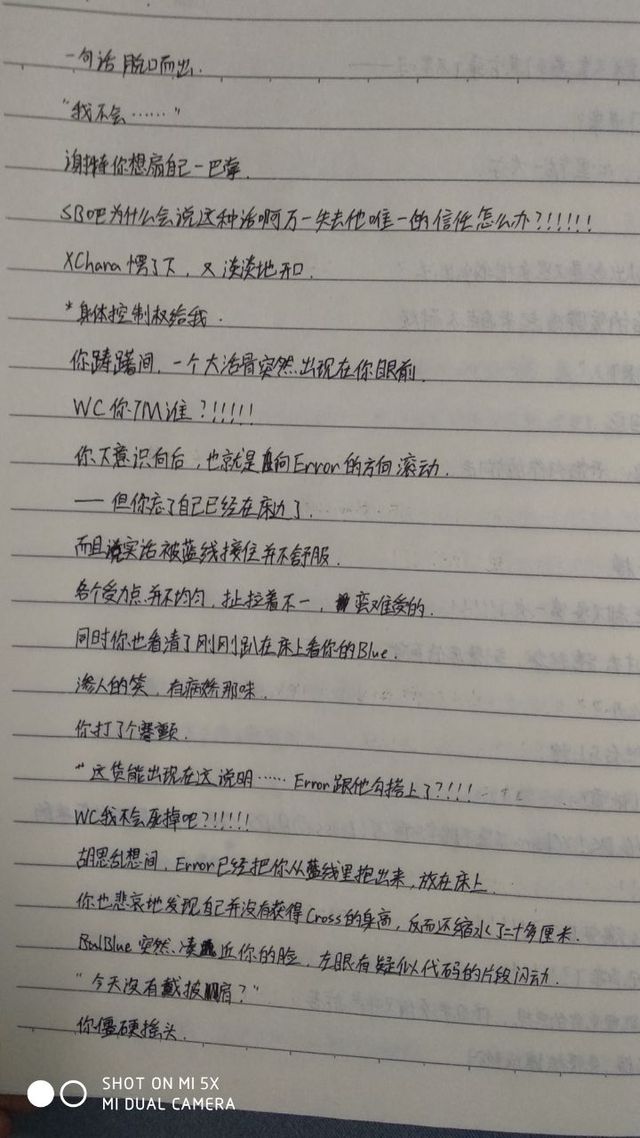 一句话脱口而出.
"我不会……"
谢特你想扇自己一巴掌.
SB吧为什么会说这种话啊万一失去他唯一的信任怎么办?!!!!!!
XChara 愣了下,又淡淡地开口.
*身体控制权给我.
你踌躇间,一个大活骨突然出现在你眼前.
WC你TM谁?!!!!!
你下意识向后,也就是向Error的方向滚动.
——但你忘了自己已经在床边了.
而且说实话被蓝线接住并不舒服.
各个受力点并不均匀,扯拉着不一,蛮难受的.
同时你也看清了刚刚趴在床上看你的Blue.
渗人的笑,有病娇那味.
你打了个寒颤.
"这货能出现在这说明…… Error跟他勾搭上了?!!!!
WC我不会死掉吧?!!!!!
胡思乱想间,Error已经把你从蓝线里抱出来,放在床上.
你也悲哀地发现自己并没有获得Cross的身高,反而还缩水了十多厘米.
Blue 突然凑近你的脸,左眼有疑似代码的片段闪动.
"今天没有戴披肩?"
你僵硬摇头.
SHOT ON MI 5X
MI DUAL CAMERA